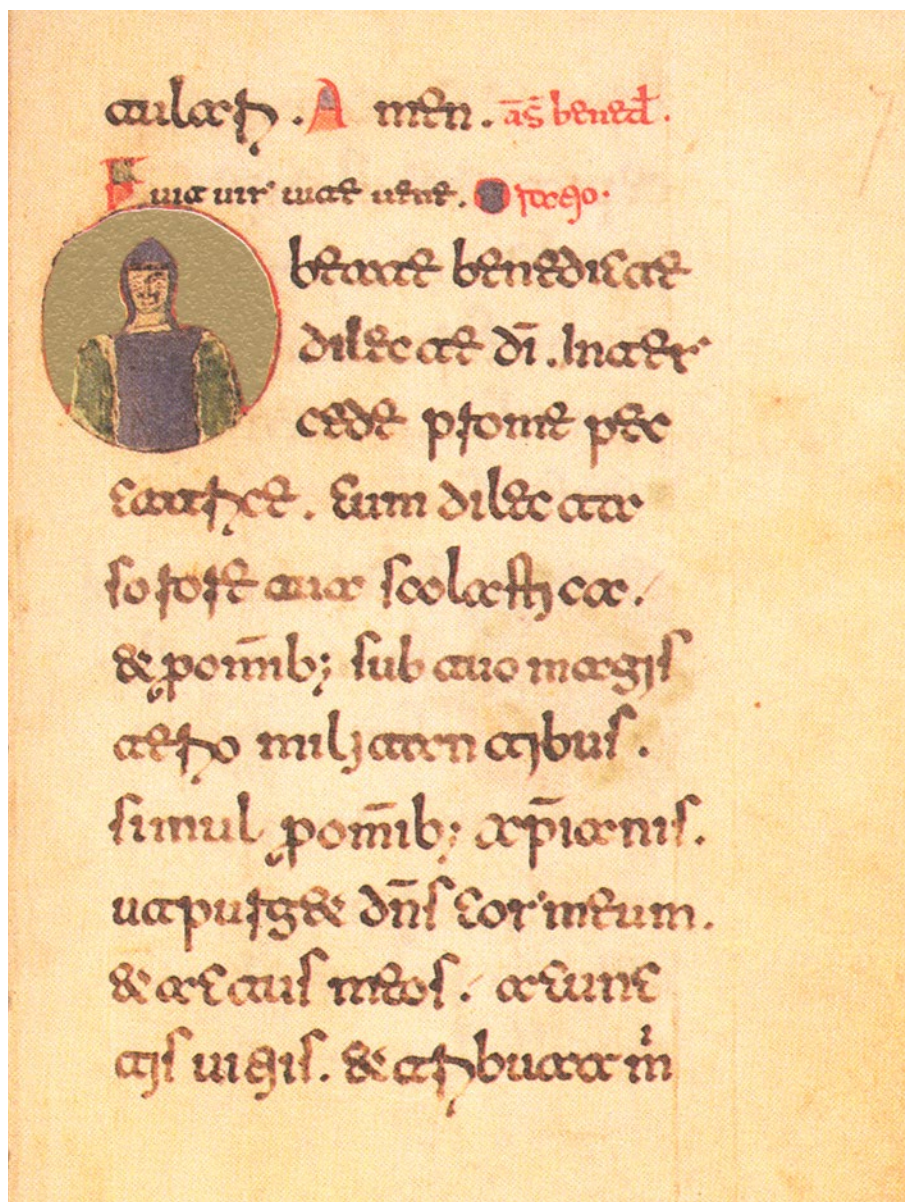 tulari . Amen . añ s̄ bened̄.
Fuit uir uite uene. Oratio.
O beate benedicte
dilecte dī. Inter
cede prome pec
catrice. Cum dilecta
sorore tua scolastica.
& ꝓ om̄ib; sub tuo magis
terio militantibus.
simul ꝓ om̄ib; xp̄ianis.
ut purg& dn̄s cor meum.
& actus meos. a cunc
tis uitiis. & tribuat m̄